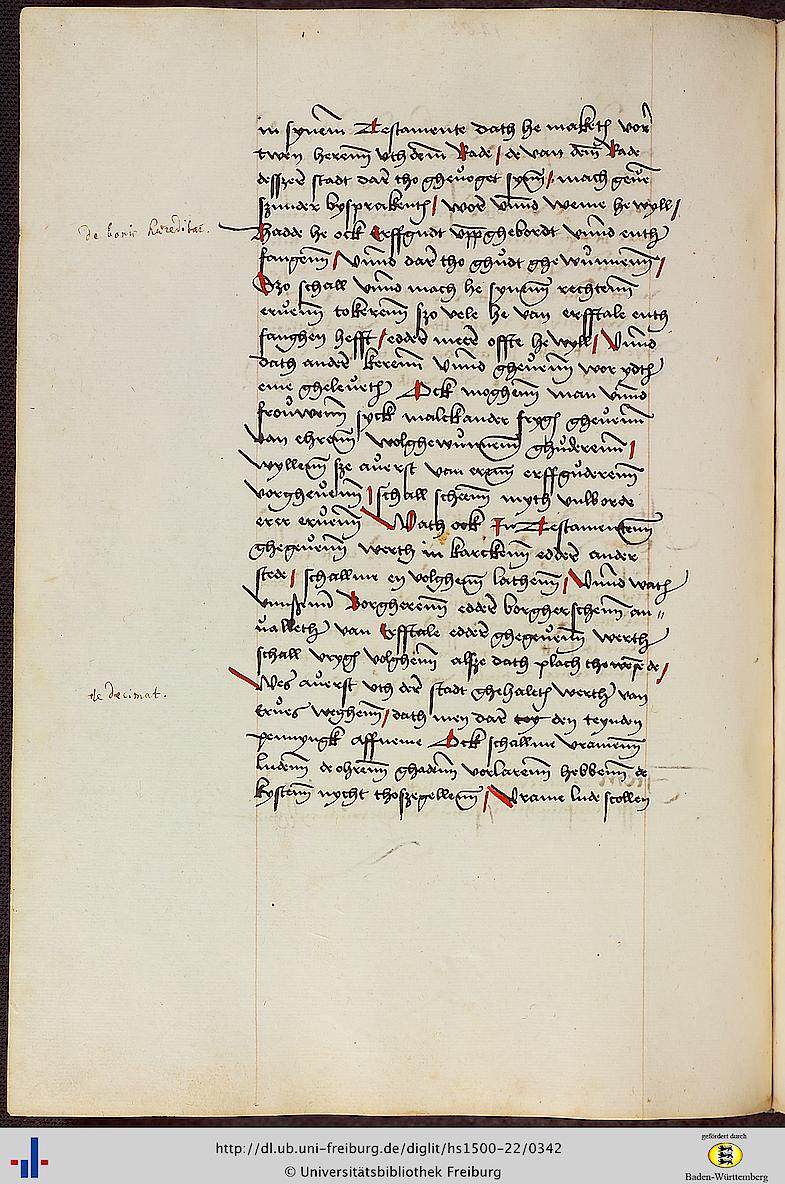 in synem Testamente dath he maketh vor
twen herenn vth dem Rade / de van dem Rade
desszer stadt dar tho gheuoget synn / mach geue
szunder bysprakenth / wor vnnd weme he wyll /
de bonis haereditar.
Hadde he ock Erffgudt vppghebordt vnnd enth
fangenn / vnnd dar tho ghudt ghewunnenn /
Szo schall vnnd mach he synenn rechtenn
eruenn tokerenn szo vele he van erfftale enth
fanghen hefft / edder meer offte he wyll / Vnnd
dath ander kerenn vnnd gheuenn wor ydth
eme gheleueth Ock moghenn man vnnd
frouwenn syck malckander frygh gheuenn
van ehrenn wolghewunnenn ghuderenn /
wyllenn sze auerst van erenn erffguderenn
vorgheuenn / schall scheenn myth vulborde
erer eruenn Wath ock In Testamentenn
ghegeuenn werth in karckenn edder ander
stede / schallme en volghenn lathenn / Vnnd wath
vnszenn Borgherenn edder borgherschenn an=
ualleth van Erfftale edder ghegeuenn werth
schall vrygh volghenn alsze dath plach tho wesede /
de decimat.
Wes auerst vth der stadt ghehaleth werth van
erues weghenn / dath men dar den teynden
pennyngk affneme Ock schallme vramenn
ludenn de ohrenn ghadenn vorlarenn hebbenn de
kystenn nycht thoszegellenn / Vrame lude scollen
http://dl.ub.uni-freiburg.de/diglit/hs1500-22/0342
© Universitätsbibliothek Freiburg
gefördert durch
Baden-Württemberg